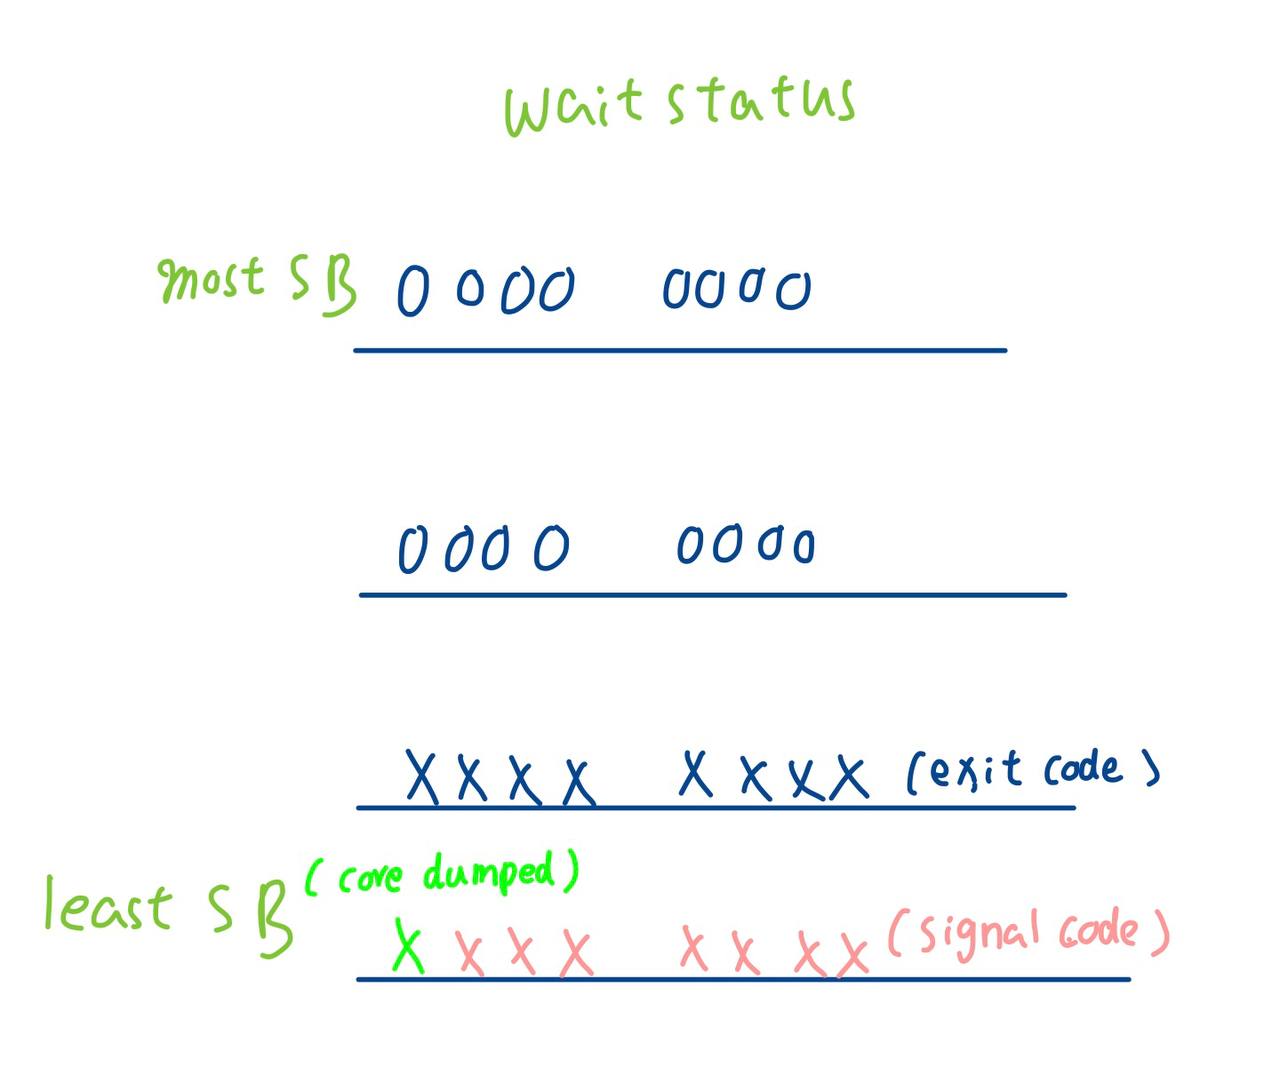 wait status
most SB 0 0 0 0 0 0 0 0
0 0 0 0 0 0 0 0
X X X X X X X X (exit code)
(core dumped)
least SB X X X X X X X X (signal code)